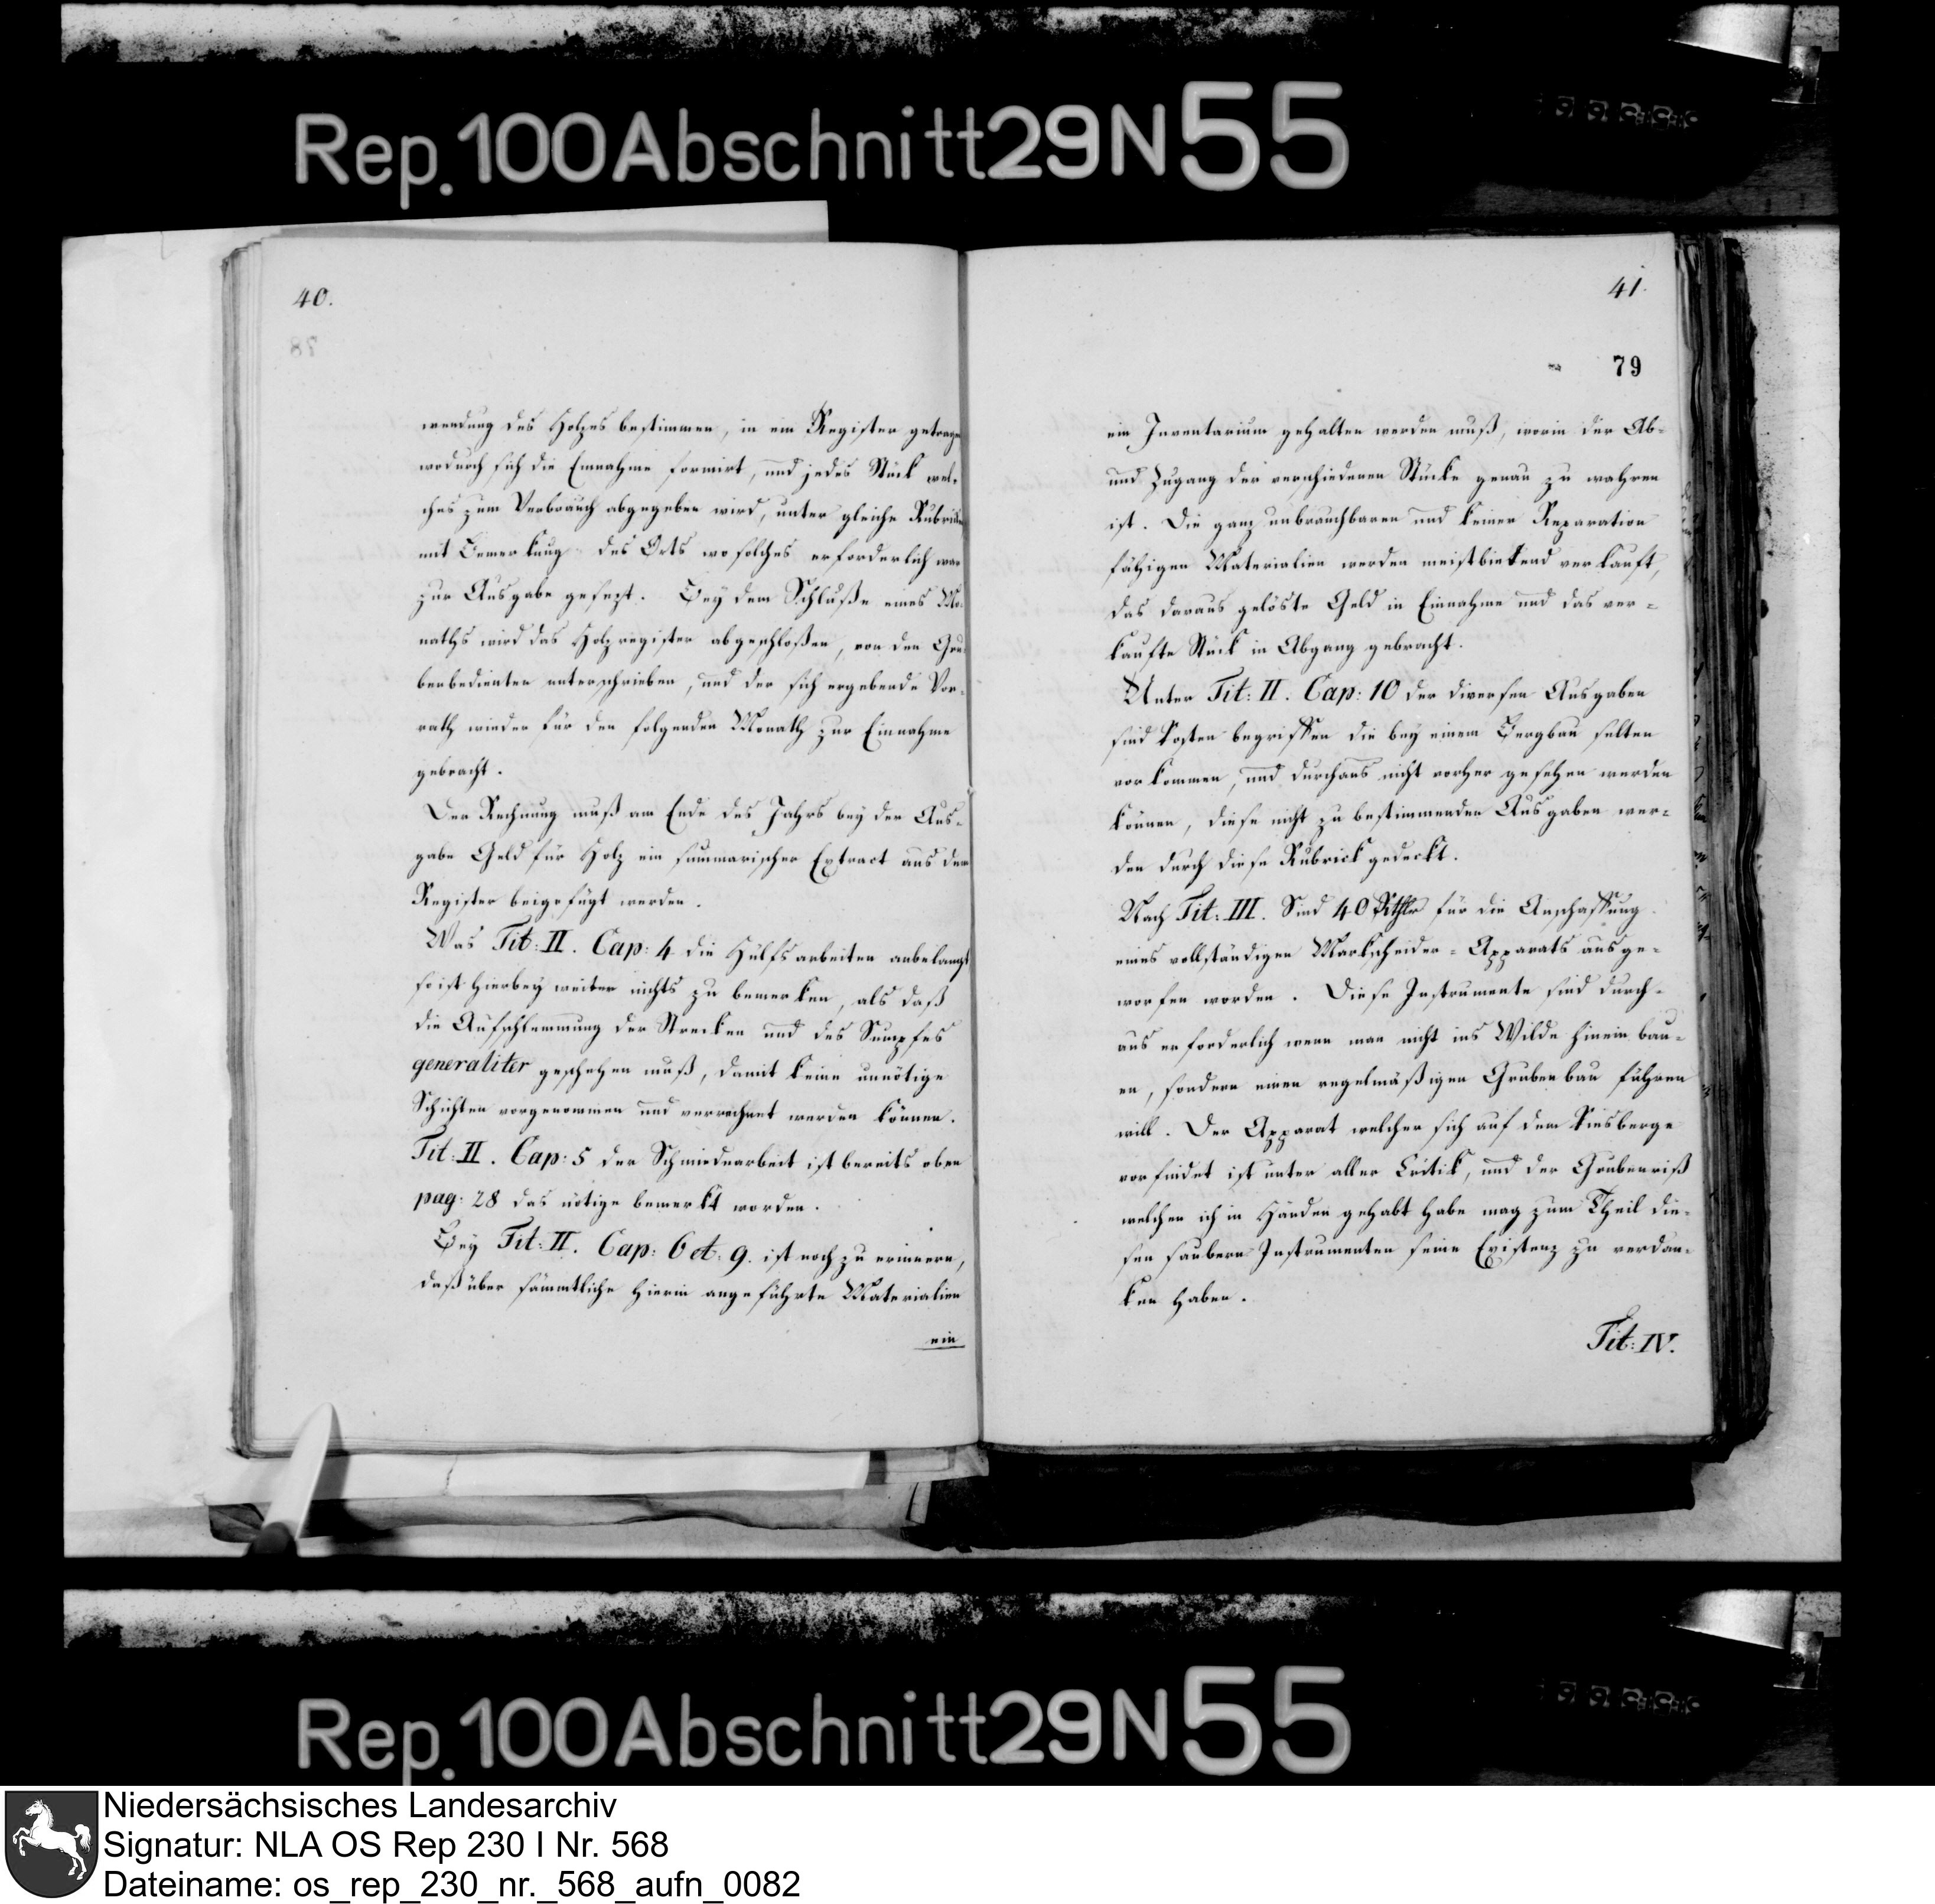 Rep. 100 Abschnitt 29 N 55
40.
wendung des Holzes bestimmen, in ein Register getragen
wodurch sich die Einnahme formirt, und jedes Stück wel-
ches zum Verbrauch abgegeben wird, unter gleiche Rubriken
mit Bemerkung des Orts wo solches erforderlich war
zur Ausgabe gesezt. Bey dem Schluße eines Mo-
naths wird das Holzregister abgeschloßen, von den Gru-
benbedienten unterschrieben, und der sich ergebende Vor-
rath wieder für den folgenden Monath zur Einnahme
gebracht.
Der Rechnung muß am Ende des Jahrs bey der Aus-
gabe Geld für Holz ein summarischer Extract aus dem
Register beigefügt werden.
Was Tit: II. Cap: 4 die Hülfsarbeiten anbelangt
so ist hierbey weiter nichts zu bemerken, als daß
die Aufschlemmung der Strecken und des Sumpfes
generaliter geschehen muß, damit keine unnötige
Schichten vorgenommen und verrechnet werden können.
Tit: II. Cap: 5 der Schmiedearbeit ist bereits oben
pag: 28 das nötige bemerkt worden.
Bey Tit: II. Cap: 6 et. 9. ist noch zu erinnern,
daß über sämmtliche hierin angeführte Materialien
ein
41.
79
ein Inventarium gehalten werden muß, worin der Ab-
und Zugang der verschiedenen Stücke genau zu wahren
ist. Die ganz unbrauchbaren und keiner Reparation
fähigen Materialien werden meistbietend verkauft,
das daraus gelöste Geld in Einnahme und das ver-
kaufte Stück in Abgang gebracht.
Unter Tit: II. Cap: 10 der diversen Ausgaben
sind Kosten begriffen die bey einem Bergbau selten
vorkommen, und durchaus nicht vorher gesehen werden
können, diese nicht zu bestimmenden Ausgaben wer-
den durch diese Rubrick gedeckt.
Nach Tit: III. Sind 40 Rthlr für die Anschaffung
eines vollständigen Markscheider-Apparats ausge-
worfen worden. Diese Instrumente sind durch-
aus erforderlich wenn man nicht ins Wilde hinein bau-
en, sondern einen regelmäßigen Grubenbau führen
will. Der Apparat welcher sich auf dem Piesberge
vorfindet ist unter aller Critik, und der Grubenriß
welchen ich in Händen gehabt habe mag zum Theil die-
sen saubern Instrumenten seine Existenz zu verdan-
ken haben.
Tit: IV.
Rep. 100 Abschnitt 29 N 55
Niedersächsisches Landesarchiv
Signatur: NLA OS Rep 230 I Nr. 568
Dateiname: os_rep_230_nr._568_aufn_0082